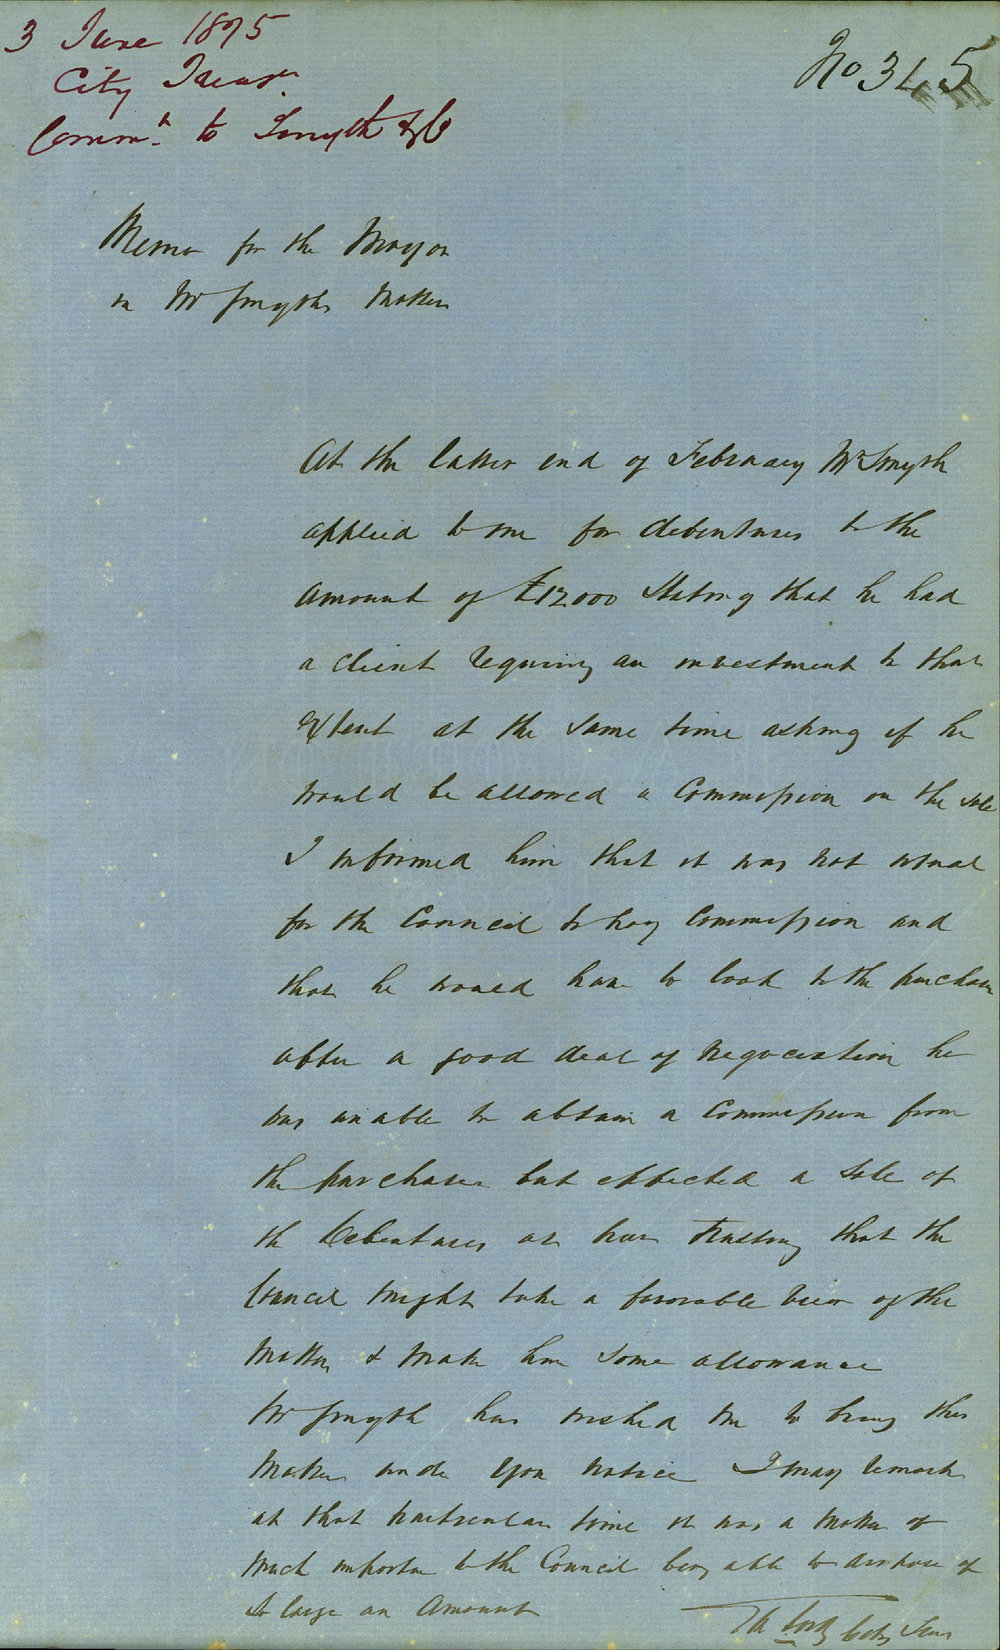 3 June 1875
City Treasr.
Commn. to Smyth & Co
No 345
Memo for the Mayor
in Mr Smyths matter
At the latter end of February Mr Smyth
applied to me for debentures to the
amount of £12000 stating that he had
a client requiring an investment to that
extent at the same time asking if he
would be allowed a Commission on the sale
I informed him that it was not usual
for the Council to pay Commission and
that he would have to look to the purchaser
after a good deal of negociation he
was unable to obtain a Commission from
the purchaser but effected a sale of
the Debentures at par trusting that the
Council might take a favorable view of the
matter & make him some allowance
Mr Smyth has wished me to bring this
matter under your notice I may remark
at that particular time it was a matter of
much importance to the Council being able to dispose of
so large an Amount
City Treas